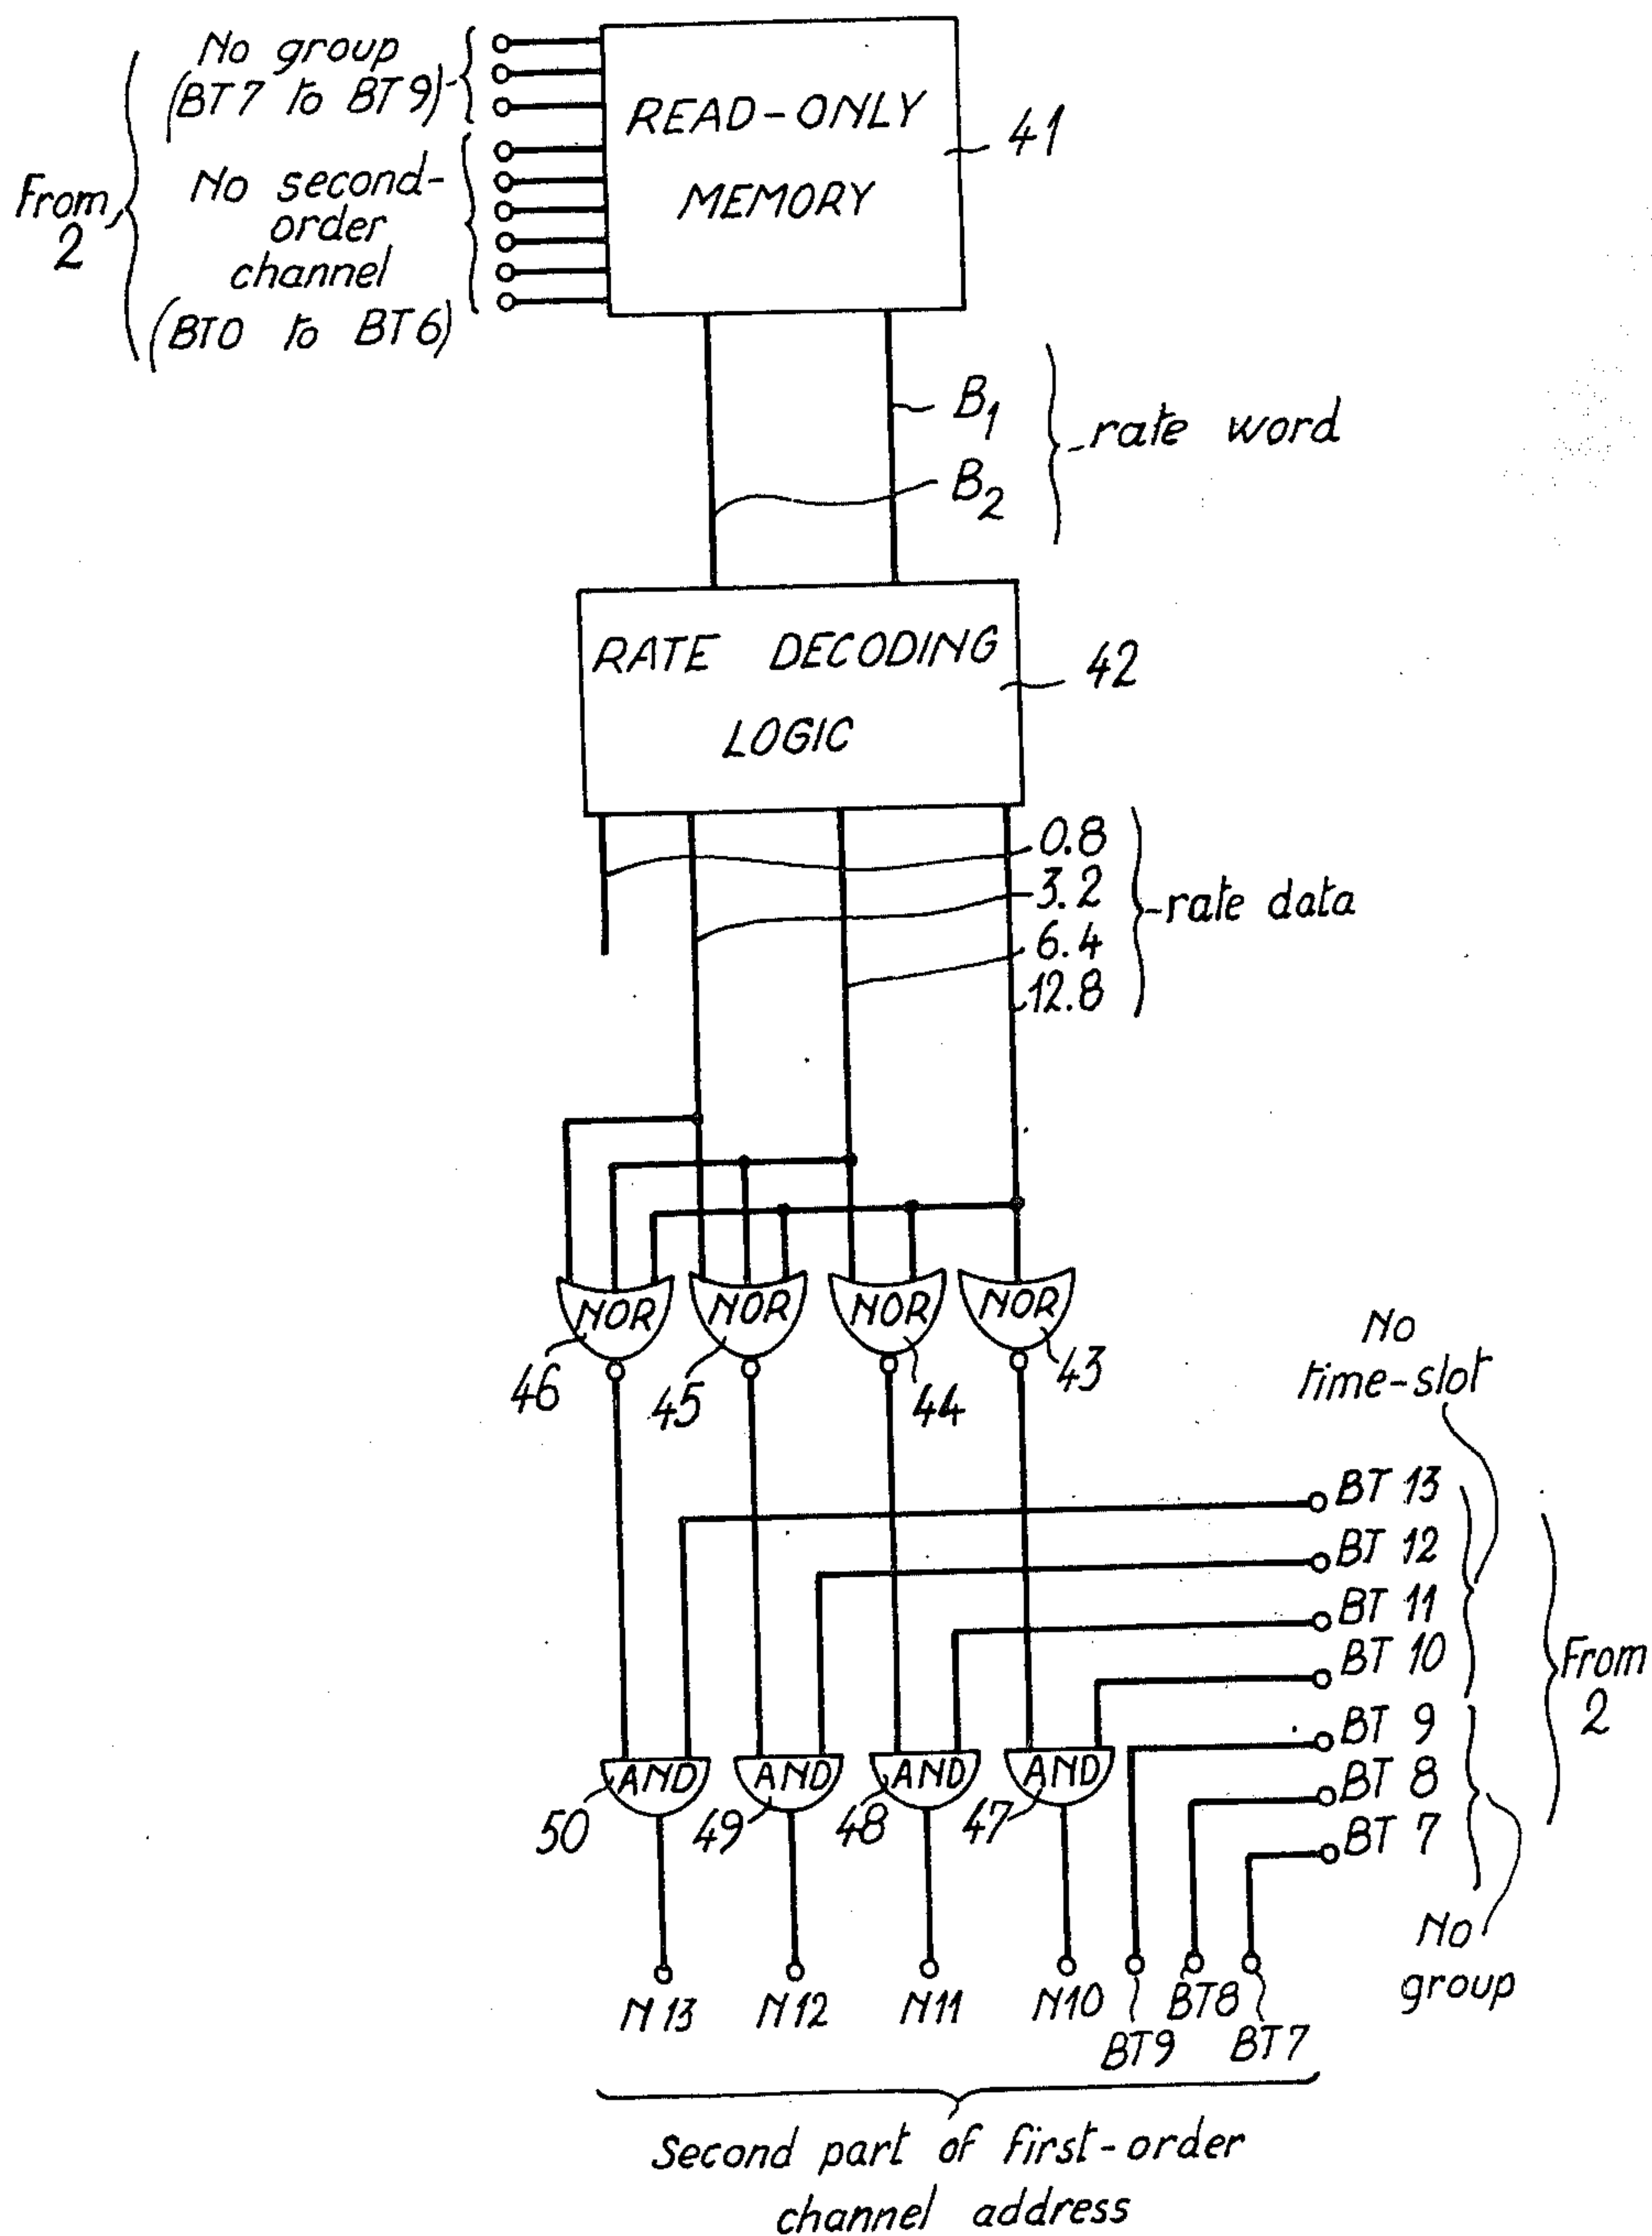 No group
(BT7 to BT9)
From
2
No second-
order
channel
(BT0 to BT6)
READ-ONLY
MEMORY
41
B1
B2
rate word
RATE DECODING
LOGIC
42
0.8
3.2
6.4
12.8
rate data
NOR
NOR
NOR
NOR
46
45
44
43
No
time-slot
BT 13
BT 12
BT 11
BT 10
BT 9
BT 8
BT 7
From
2
AND
AND
AND
AND
50
49
48
47
No
group
N13
N12
N11
N10
BT9
BT8
BT7
Second part of first-order
channel address